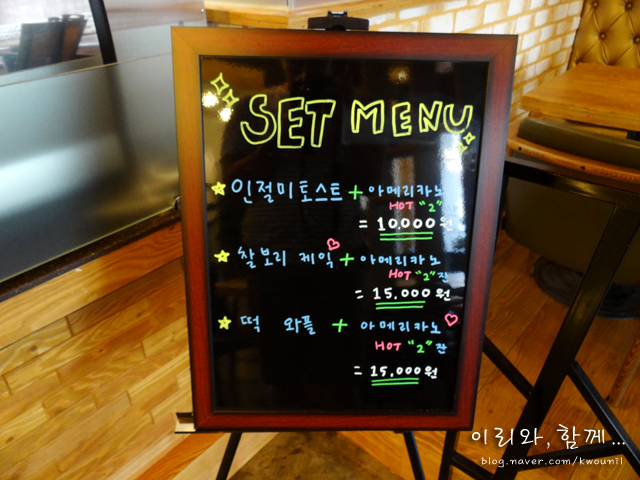 SET MENU
인절미토스트 + 아메리카노
HOT "2"잔
= 10,000원
찰보리 케익 + 아메리카노
HOT "2"잔
= 15,000원
떡 와플 + 아메리카노
HOT "2" 잔
= 15,000원
이리와, 함께...
blog.naver.com/kwounil